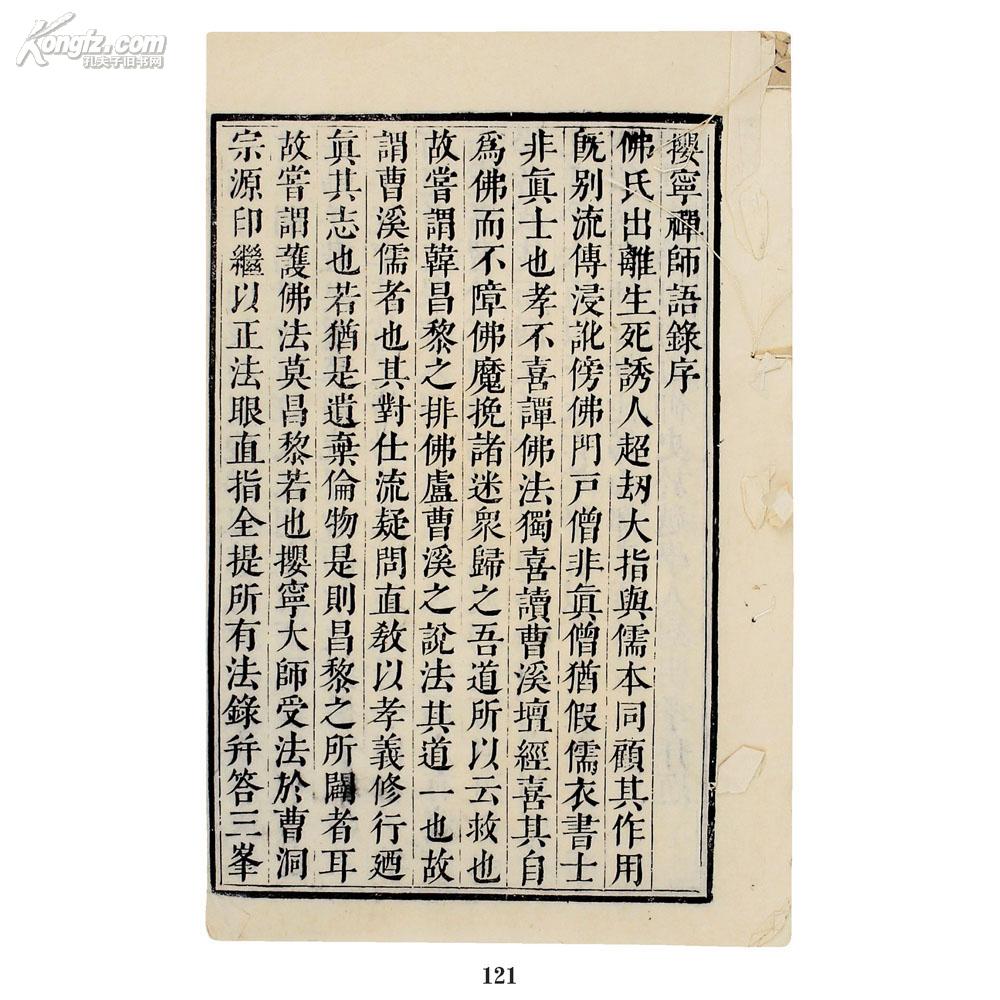 Kongfz.com
孔夫子旧书网
攖寧禪師語錄序
佛氏出離生死誘人超刼大指與儒本同顧其作用
旣别流傳浸訛傍佛門戸僧非眞僧猶假儒衣書士
非眞士也孝不喜譚佛法獨喜讀曹溪壇經喜其自
爲佛而不障佛魔挽諸迷衆歸之吾道所以云救也
故嘗謂韓昌黎之排佛盧曹溪之說法其道一也故
謂曹溪儒者也其對仕流疑問直敎以孝義修行廼
眞其志也若猶是遺棄倫物是則昌黎之所闢者耳
故嘗謂護佛法莫昌黎若也攖寧大師受法於曹洞
宗源印繼以正法眼直指全提所有法錄幷答三峯
121